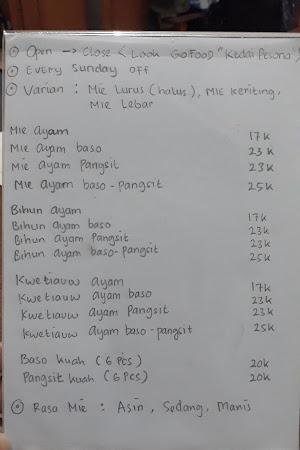 Open → Close < Look GoFood "Kedai Pesona"
EVERY Sunday OFF
Varian : Mie Lurus (halus), Mie Keriting,
Mie Lebar
Mie Ayam 17K
Mie Ayam baso 23K
Mie Ayam Pangsit 23K
Mie Ayam baso-Pangsit 25K
Bihun ayam 17K
Bihun ayam baso 23K
Bihun ayam Pangsit 23K
Bihun ayam baso-Pangsit 25K
Kwetiauw ayam 17K
Kwetiauw ayam baso 23K
Kwetiauw ayam Pangsit 23K
Kwetiauw ayam baso-pangsit 25K
Baso kuah (6 Pcs) 20K
Pangsit kuah (6 Pcs) 20K
Rasa Mie : Asin, Sedang, Manis